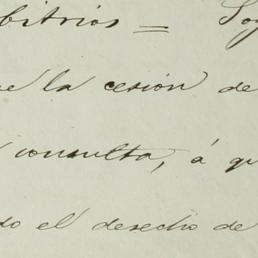 bitrios =
la cesión de
consulta, á qu
do el derecho de